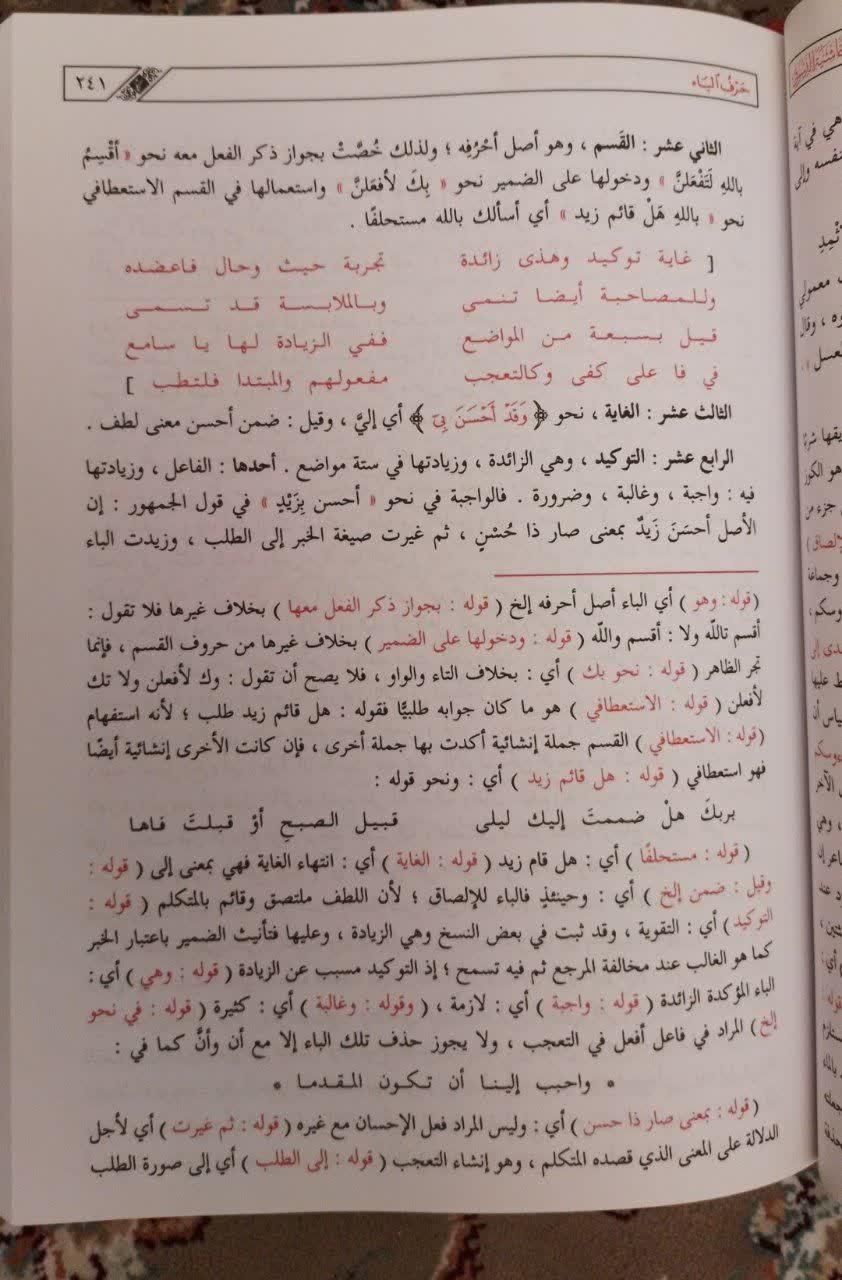 حَرْفُ ٱلبَاء
٢٤١
الثاني عشر : القَسم ، وهو أصل أحْرُفِه ؛ ولذلك خُصَّتْ بجواز ذكر الفعل معه نحو « أقْسِمُ
باللهِ لَتَفْعَلنَّ » ودخولها على الضمير نحو « بِكَ لأفعَلنَّ » واستعمالها في القسم الاستعطافي
نحو « باللهِ هَلْ قائم زيد » أي أسألك بالله مستحلفًا .
[ غاية توكيد وهذى زائدة تجربة حيث وحال فاعضده
وللمصاحبة أيضا تنمى وبالملابسة قد تسمى
قيل بسبعة من المواضع ففي الزيادة لها يا سامع
في فا على كفى وكالتعجب مفعولهم والمبتدا فلتطب ]
الثالث عشر : الغاية ، نحو ﴿ وَقَدْ أَحْسَنَ بِىٓ ﴾ أي إليَّ ، وقيل : ضمن أحسن معنى لطف .
الرابع عشر : التوكيد ، وهي الزائدة ، وزيادتها في ستة مواضع . أحدها : الفاعل ، وزيادتها
فيه : واجبة ، وغالبة ، وضرورة . فالواجبة في نحو « أحسن بِزَيْدٍ » في قول الجمهور : إن
الأصل أحسَنَ زَيدٌ بمعنى صار ذا حُسْنٍ ، ثم غيرت صيغة الخبر إلى الطلب ، وزيدت الباء
( قوله : وهو ) أي الباء أصل أحرفه إلخ ( قوله : بجواز ذكر الفعل معها ) بخلاف غيرها فلا تقول :
أقسم تاللّه ولا : أقسم واللّه ( قوله : ودخولها على الضمير ) بخلاف غيرها من حروف القسم ، فإنما
تجر الظاهر ( قوله : نحو بك ) أي : بخلاف التاء والواو ، فلا يصح أن تقول : وك لأفعلن ولا تك
لأفعلن ( قوله : الاستعطافي ) هو ما كان جوابه طلبيًّا فقوله : هل قائم زيد طلب ؛ لأنه استفهام
( قوله : الاستعطافي ) القسم جملة إنشائية أكدت بها جملة أخرى ، فإن كانت الأخرى إنشائية أيضًا
فهو استعطافي ( قوله : هل قائم زيد ) أي : ونحو قوله :
بربكَ هلْ ضممتَ إليك ليلى قبيل الصبحِ أوْ قبلتَ فاها
( قوله : مستحلفًا ) أي : هل قام زيد ( قوله : الغاية ) أي : انتهاء الغاية فهي بمعنى إلى ( قوله :
وقيل : ضمن إلخ ) أي : وحينئذٍ فالباء للإلصاق ؛ لأن اللطف ملتصق وقائم بالمتكلم ( قوله :
التوكيد ) أي : التقوية ، وقد ثبت في بعض النسخ وهي الزيادة ، وعليها فتأنيث الضمير باعتبار الخبر
كما هو الغالب عند مخالفة المرجع ثم فيه تسمح ؛ إذ التوكيد مسبب عن الزيادة ( قوله : وهي ) أي :
الباء المؤكدة الزائدة ( قوله : واجبة ) أي : لازمة ، ( وقوله : وغالبة ) أي : كثيرة ( قوله : في نحو
إلخ ) المراد في فاعل أفعل في التعجب ، ولا يجوز حذف تلك الباء إلا مع أن وأنَّ كما في :
* واحبب إلينا أن تكون المقدما *
( قوله : بمعنى صار ذا حسن ) أي : وليس المراد فعل الإحسان مع غيره ( قوله : ثم غيرت ) أي لأجل
الدلالة على المعنى الذي قصده المتكلم ، وهو إنشاء التعجب ( قوله : إلى الطلب ) أي إلى صورة الطلب